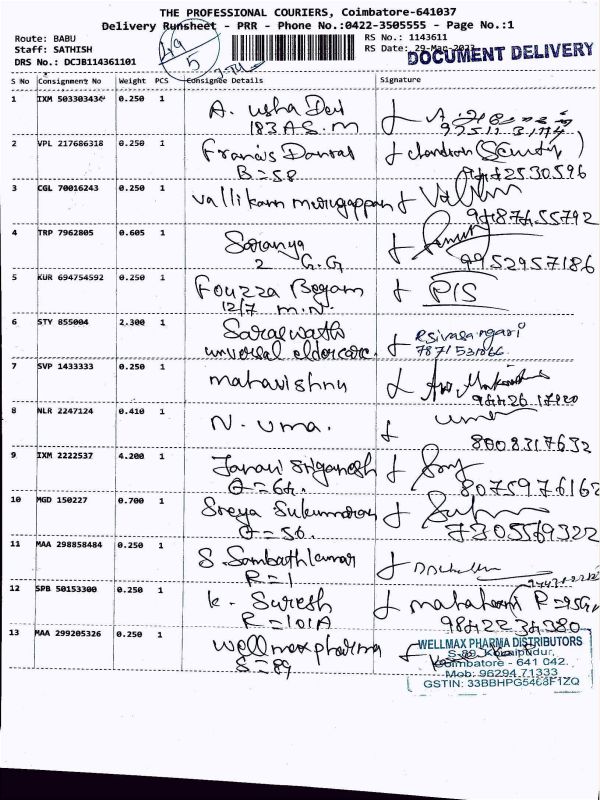 THE PROFESSIONAL COURIERS, Coimbatore-641037
Delivery Runsheet - PRR - Phone No.:0422-3505555 - Page No.:1
Route: BABU RS No.: 1143611
Staff: SATHISH RS Date: 29-Mar-2023
DRS No.: DCJB114361101 DOCUMENT DELIVERY
49
5
S No Consignment No Weight PCS Consignee Details Signature
1 IXM 503303434 0.250 1 A. Usha Devi
183 A S. M
2 VPL 217686318 0.250 1 Francis Danral chandran (Security)
B = 58 9442530596
3 CGL 70016243 0.250 1 Vallikann murugappan
9487655792
4 TRP 7962805 0.605 1 Saranya
2 G.G 9952957186
5 KUR 694754592 0.250 1 Fouzza Begam PIS
12/7 m.N.
6 STY 855004 2.300 1 Saraswathi R.sivasangari
universal eldercare. 7871531866
7 SVP 1433333 0.250 1 mahavishnu
8 NLR 2247124 0.410 1 N. uma. uma
8008317632
9 IXM 2222537 4.200 1 Janani Sriganesh
O = 64. 8075976162
10 MGD 150227 0.700 1 Sreya Sukumaran
O = 56. 7305569322
11 MAA 298858484 0.250 1 S. Sambathkumar
R = 1
12 SPB 50153300 0.250 1 K. Suresh
R = 101A 9842234380
13 MAA 299205326 0.250 1 wellmaxpharma
S = 89
WELLMAX PHARMA DISTRIBUTORS
S-89,
Coimbatore - 641 042.
Mob: 96294 71333
GSTIN: 33BBHPG5468F1ZQ